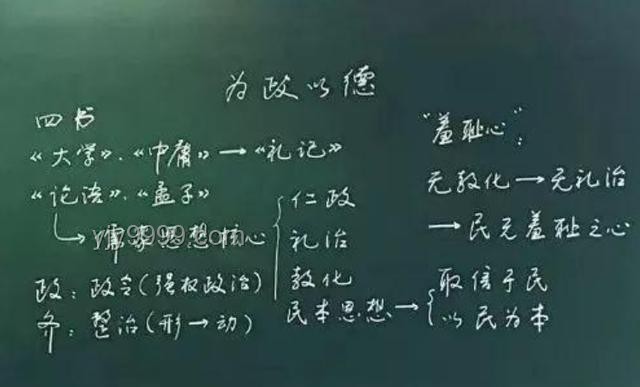 为政以德
四书
《大学》、《中庸》→《礼记》
《论语》、《孟子》
↳儒家思想核心{
仁政
礼治
教化
政：政令（强权政治）
齐：整治（形→动）
民本思想→{
取信于民
以民为本
"羞耻心"：
无教化→无礼治
→民无羞耻之心